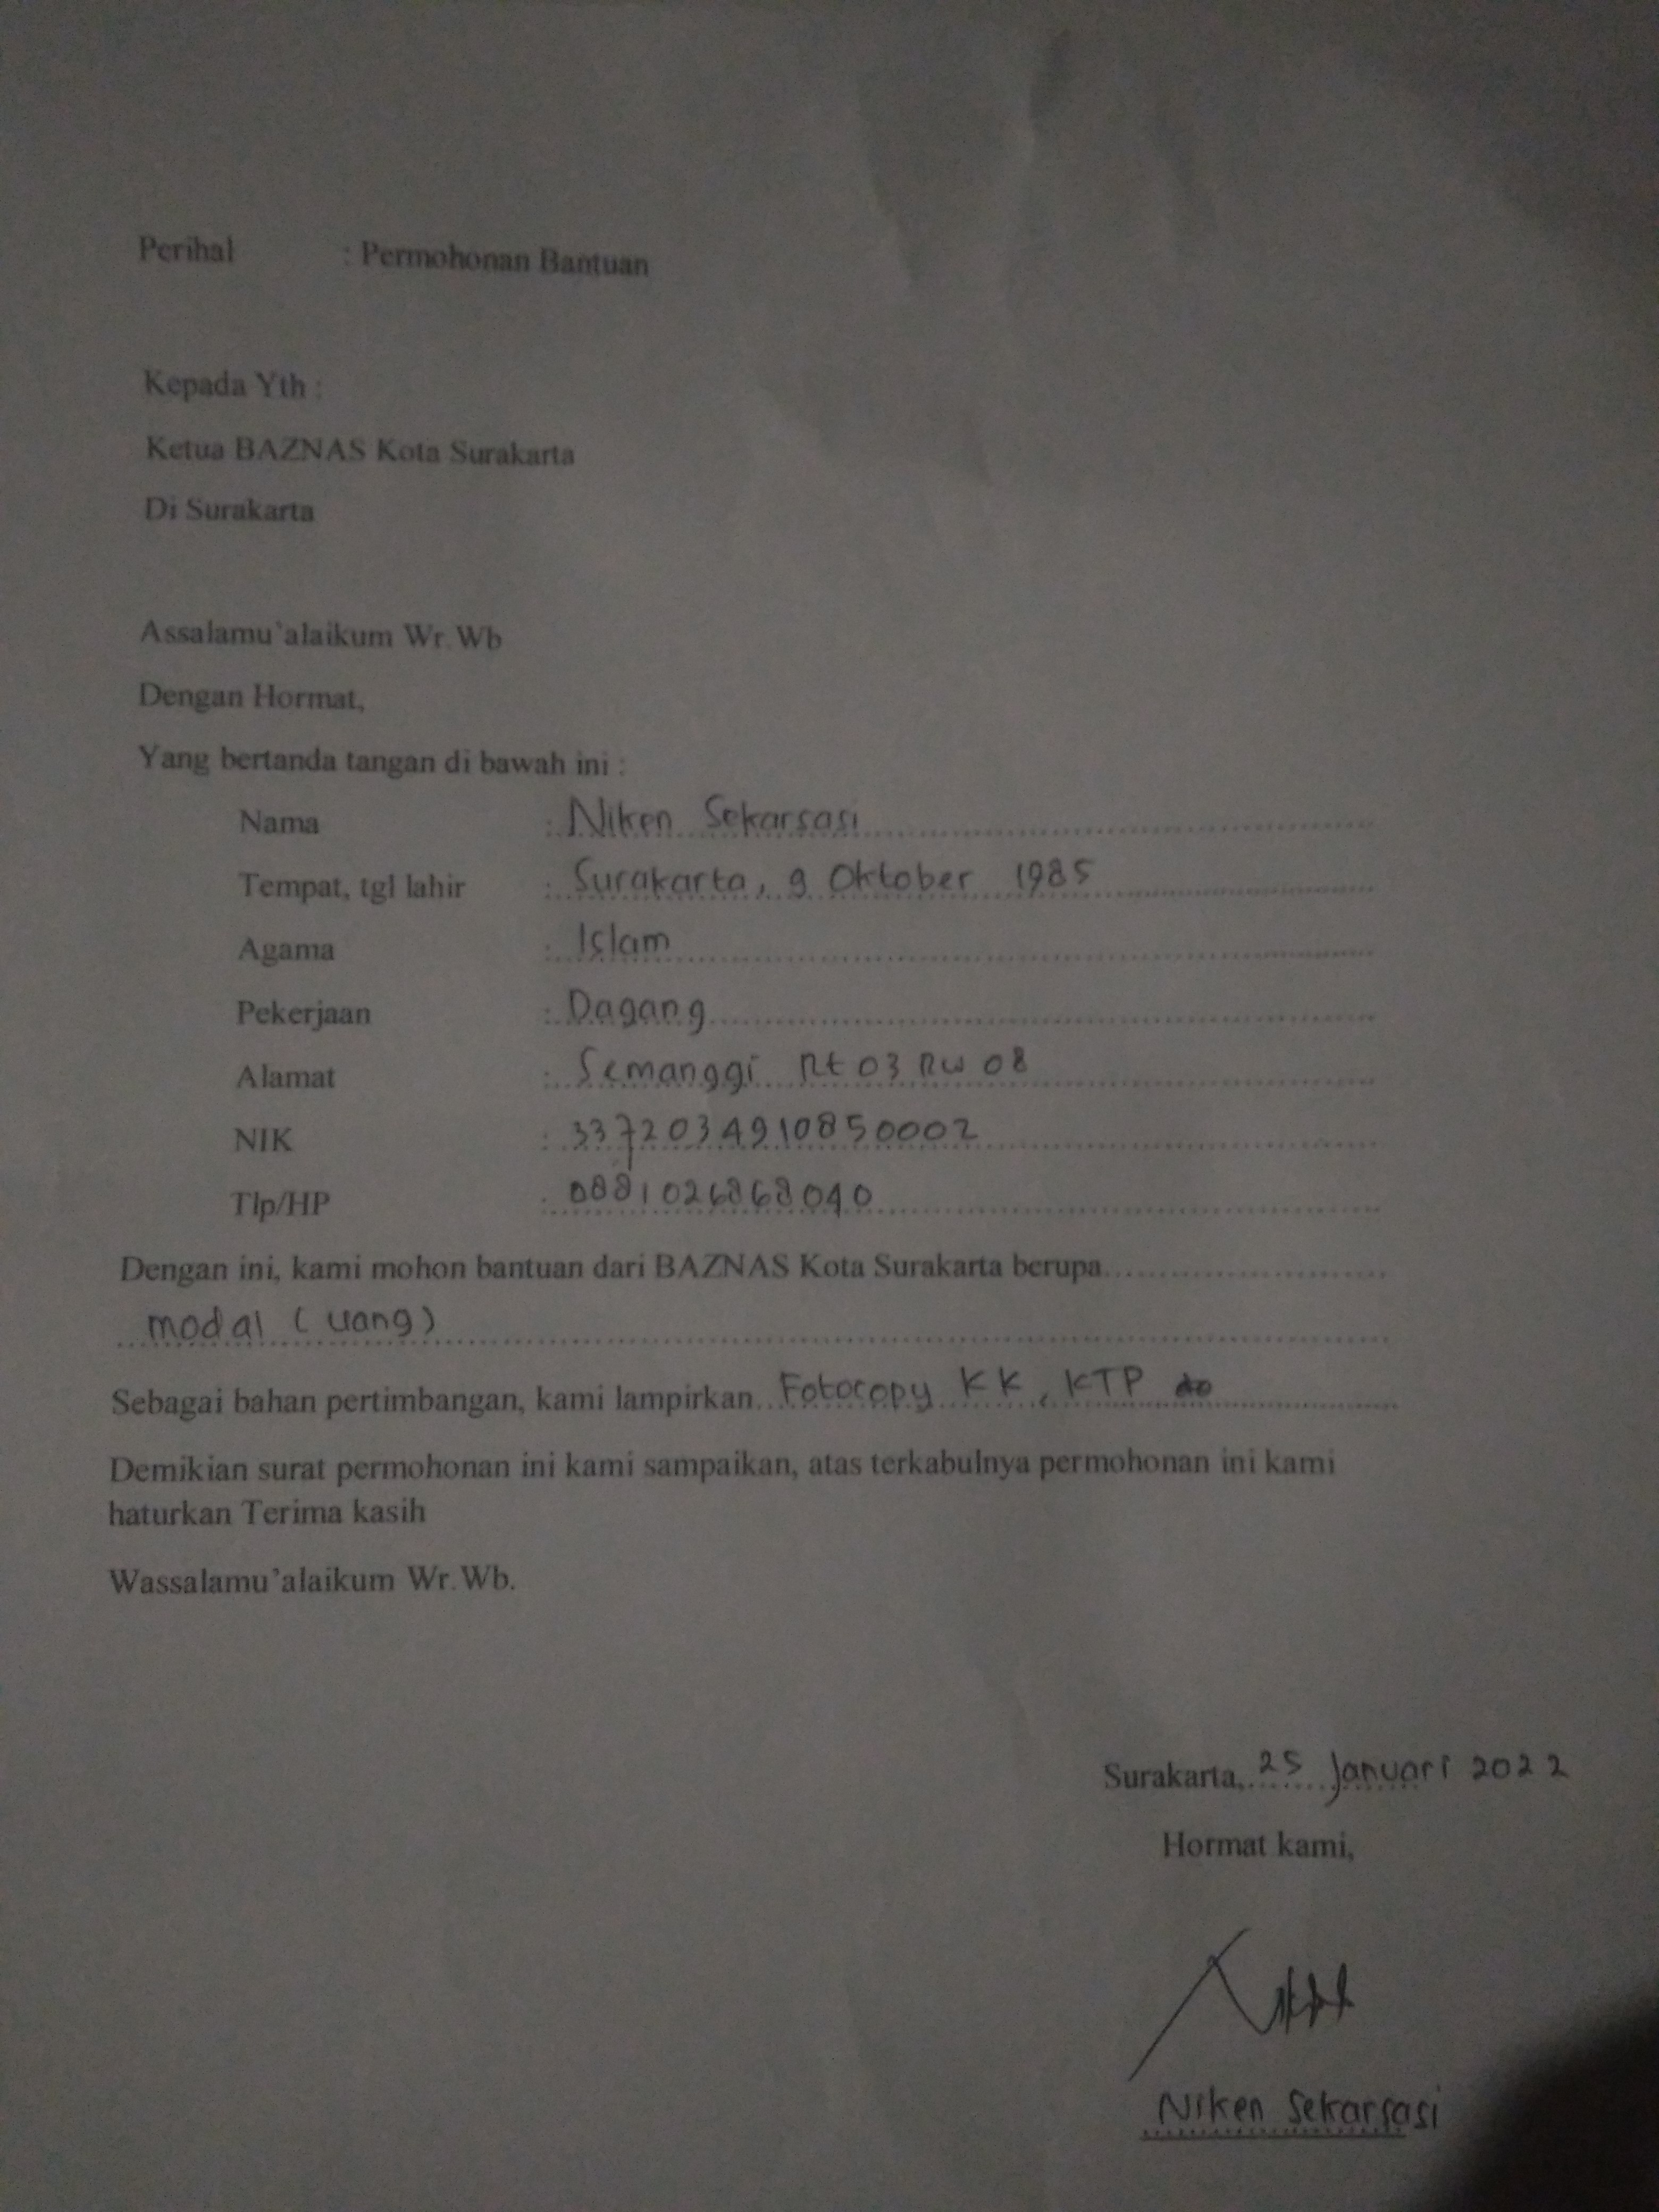 Perihal : Permohonan Bantuan
Kepada Yth :
Ketua BAZNAS Kota Surakarta
Di Surakarta
Assalamu'alaikum Wr.Wb
Dengan Hormat,
Yang bertanda tangan di bawah ini :
Nama : Niken Sekarsasi
Tempat, tgl lahir : Surakarta, 9 Oktober 1985
Agama : Islam
Pekerjaan : Dagang
Alamat : Semanggi Rt 03 Rw 08
NIK : 3372034910850002
Tlp/HP : 0881026868040
Dengan ini, kami mohon bantuan dari BAZNAS Kota Surakarta berupa
modal (uang)
Sebagai bahan pertimbangan, kami lampirkan Fotocopy KK, KTP
Demikian surat permohonan ini kami sampaikan, atas terkabulnya permohonan ini kami
haturkan Terima kasih
Wassalamu'alaikum Wr.Wb.
Surakarta, 25 Januari 2022
Hormat kami,
Niken Sekarsasi